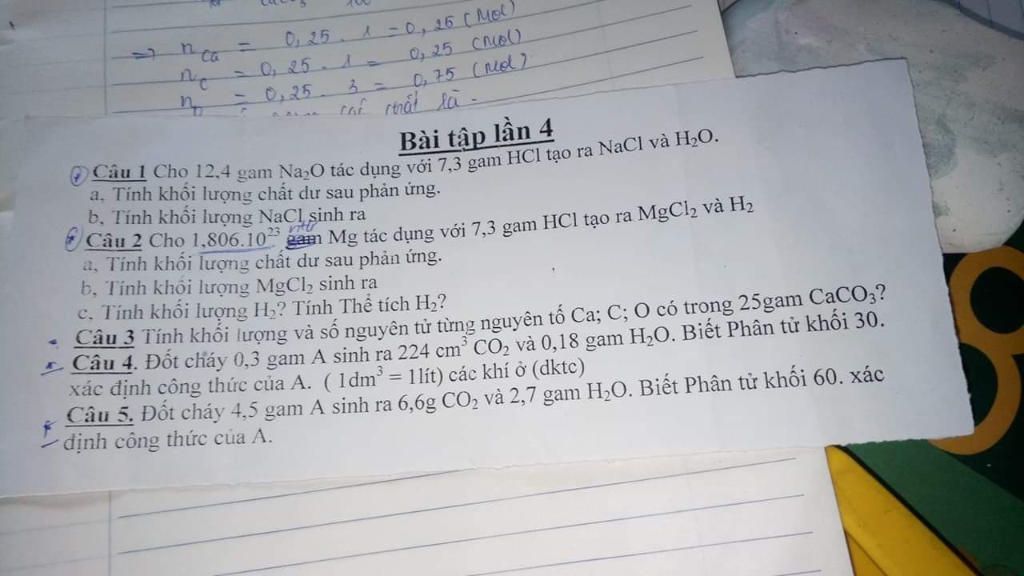 ⇒ n Ca = 0,25 . 1 = 0,25 (Mol)
n C = 0,25 . 1 = 0,25 (Mol)
= 0,25 . 3 = 0,75 (Mol)
chất là
Bài tập lần 4
Câu 1 Cho 12,4 gam Na₂O tác dụng với 7,3 gam HCl tạo ra NaCl và H₂O.
a, Tính khối lượng chất dư sau phản ứng.
b, Tính khối lượng NaCl sinh ra
Câu 2 Cho 1,806.10²³ gam Mg tác dụng với 7,3 gam HCl tạo ra MgCl₂ và H₂
a, Tính khối lượng chất dư sau phản ứng.
b, Tính khối lượng MgCl₂ sinh ra
c, Tính khối lượng H₂? Tính Thể tích H₂?
Câu 3 Tính khối lượng và số nguyên tử từng nguyên tố Ca; C; O có trong 25gam CaCO₃?
Câu 4. Đốt cháy 0,3 gam A sinh ra 224 cm³ CO₂ và 0,18 gam H₂O. Biết Phân tử khối 30.
xác định công thức của A. ( 1dm³ = 1lít) các khí ở (dktc)
Câu 5. Đốt cháy 4,5 gam A sinh ra 6,6g CO₂ và 2,7 gam H₂O. Biết Phân tử khối 60. xác
định công thức của A.